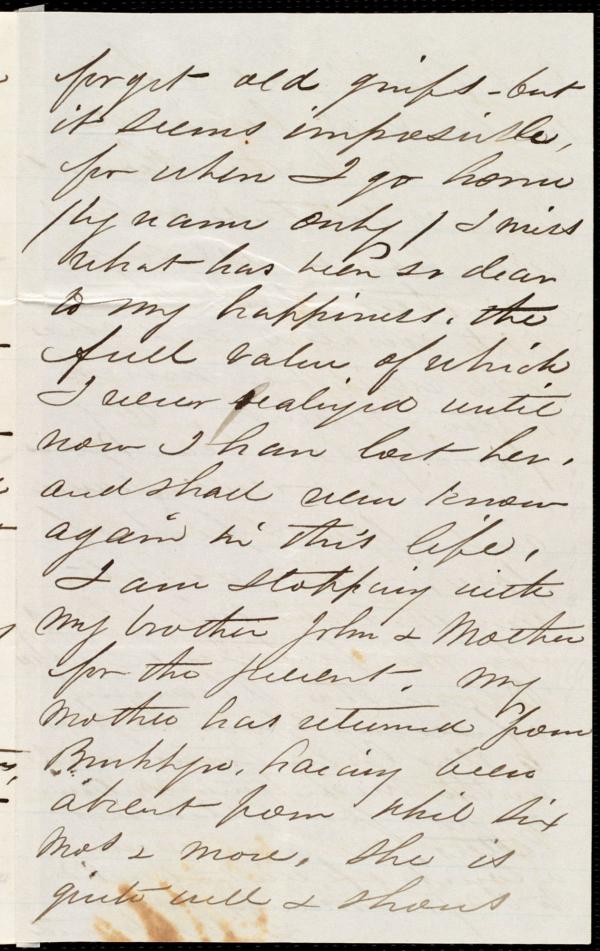 forget old griefs - but
it seems impossible,
for when I go home
/by name only/ I miss
what has been so dear
to my happiness. the
full value of which
I never realized until
now I have lost her,
and shall never know
again in this life,
I am stopping with
my brother John & Mother
for the present. My
Mother has returned from
Brooklyn. having been
absent from Phil six
mos & more. She is
quite well & shows